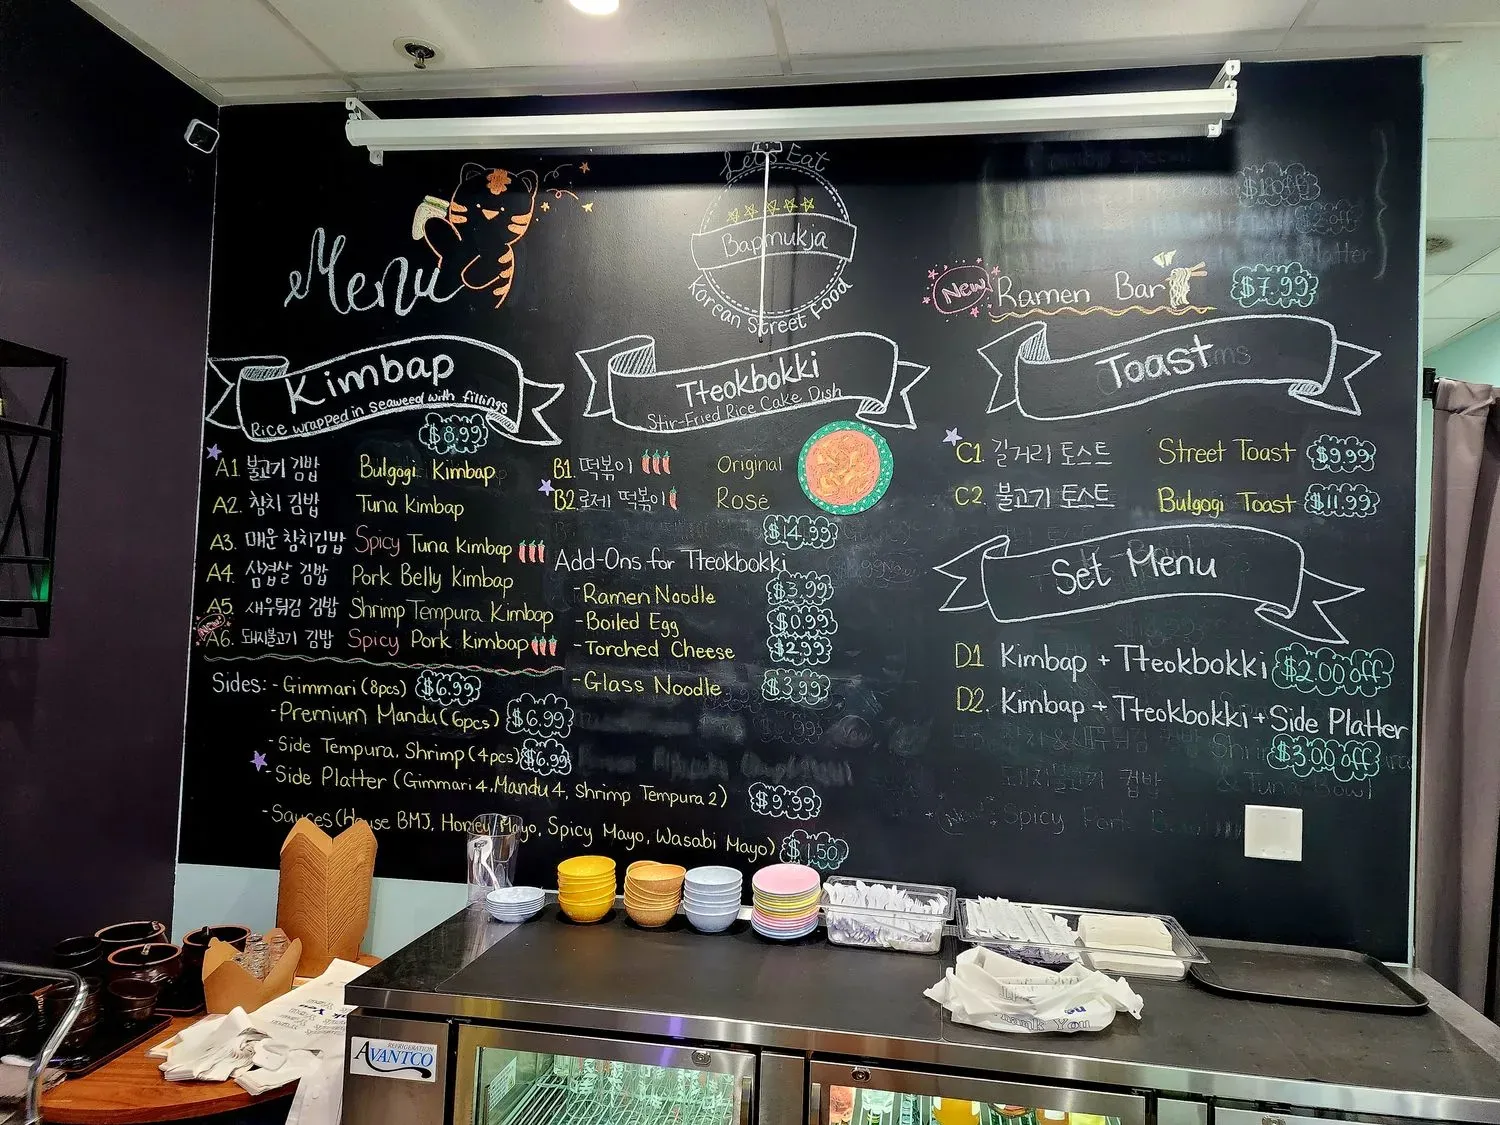 Menu
Let's Eat
Bapmukja
Korean Street Food
New! Ramen Bar $7.99
Kimbap
Rice wrapped in seaweed with fillings
$8.99
A1 불고기 김밥 Bulgogi Kimbap
A2. 참치 김밥 Tuna Kimbap
A3. 매운 참치김밥 Spicy Tuna Kimbap
A4. 삼겹살 김밥 Pork Belly Kimbap
A5. 새우튀김 김밥 Shrimp Tempura Kimbap
New! A6. 돼지불고기 김밥 Spicy Pork Kimbap
Sides: - Gimmari (8pcs) $6.99
- Premium Mandu (6pcs) $6.99
- Side Tempura, Shrimp (4pcs) $6.99
- Side Platter (Gimmari 4, Mandu 4, Shrimp Tempura 2) $9.99
- Sauces (House BMJ, Honey Mayo, Spicy Mayo, Wasabi Mayo) $1.50
Tteokbokki
Stir-Fried Rice Cake Dish
B1. 떡볶이 Original
B2. 로제 떡볶이 Rosé
$14.99
Add-Ons for Tteokbokki
- Ramen Noodle $3.99
- Boiled Egg $0.99
- Torched Cheese $2.99
- Glass Noodle $3.99
Toast
C1. 길거리 토스트 Street Toast $9.99
C2. 불고기 토스트 Bulgogi Toast $11.99
Set Menu
D1 Kimbap + Tteokbokki $2.00 off
D2. Kimbap + Tteokbokki + Side Platter
$3.00 off
돼지불고기 컵밥
Spicy Pork
REFRIGERATION
AVANTCO
Thank You